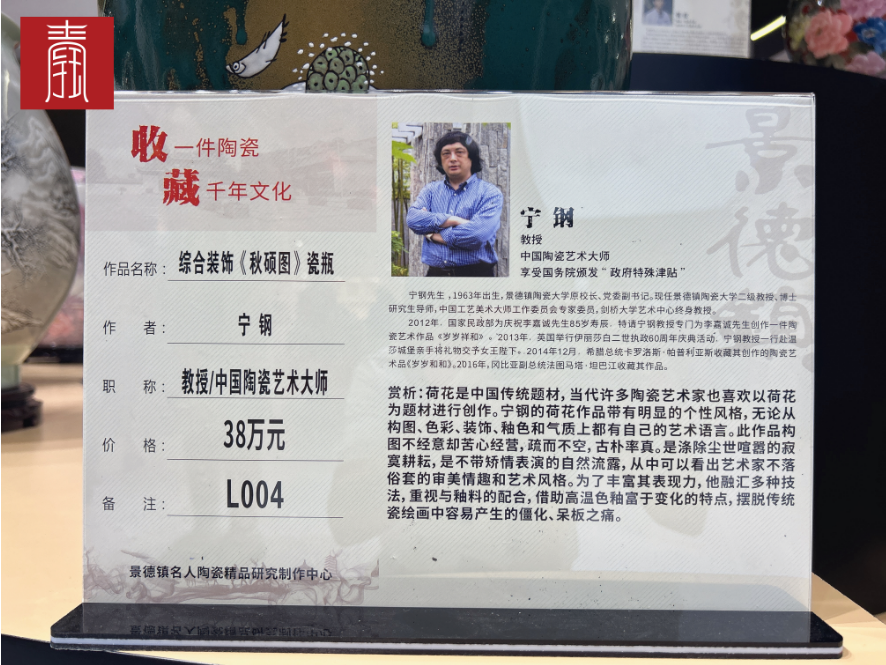 收一件陶瓷
藏千年文化
作品名称：综合装饰《秋硕图》瓷瓶
作 者：宁钢
职 称：教授/中国陶瓷艺术大师
价 格：38万元
备 注：L004
景德镇名人陶瓷精品研究制作中心
宁钢
教授
中国陶瓷艺术大师
享受国务院颁发“政府特殊津贴”
景德镇
宁钢先生，1963年出生，景德镇陶瓷大学原校长、党委副书记。现任景德镇陶瓷大学二级教授、博士
研究生导师，中国工艺美术大师工作委员会专家委员，剑桥大学艺术中心终身教授。
2012年，国家民政部为庆祝李嘉诚先生85岁寿辰，特请宁钢教授专门为李嘉诚先生创作一件陶
瓷艺术作品《岁岁祥和》。2013年，英国举行伊丽莎白二世执政60周年庆典活动，宁钢教授一行赴温
莎城堡亲手将礼物交予女王陛下。2014年12月，希腊总统卡罗洛斯·帕普利亚斯收藏其创作的陶瓷艺
术品《岁岁和和》。2016年，冈比亚副总统法图马塔·坦巴江收藏其作品。
赏析：荷花是中国传统题材，当代许多陶瓷艺术家也喜欢以荷花
为题材进行创作。宁钢的荷花作品带有明显的个性风格，无论从
构图、色彩、装饰、釉色和气质上都有自己的艺术语言。此作品构
图不经意却苦心经营，疏而不空，古朴率真。是涤除尘世喧嚣的寂
寞耕耘，是不带矫情表演的自然流露，从中可以看出艺术家不落
俗套的审美情趣和艺术风格。为了丰富其表现力，他融汇多种技
法，重视与釉料的配合，借助高温色釉富于变化的特点，摆脱传统
瓷绘画中容易产生的僵化、呆板之痛。